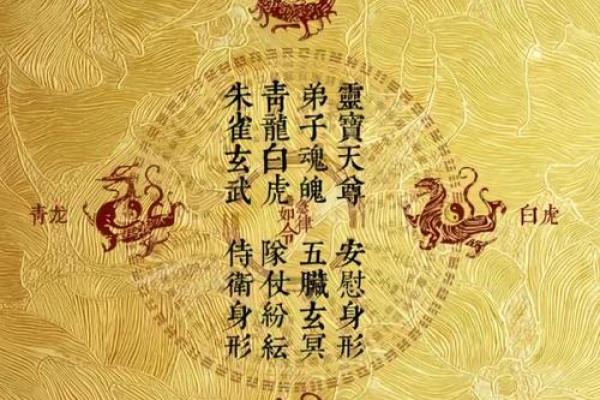 靈寶天尊 安慰身形
弟子魂魄 五臟玄冥
青龍白虎 隊仗紛紜
朱雀玄武 侍衛身形
白虎
青龙